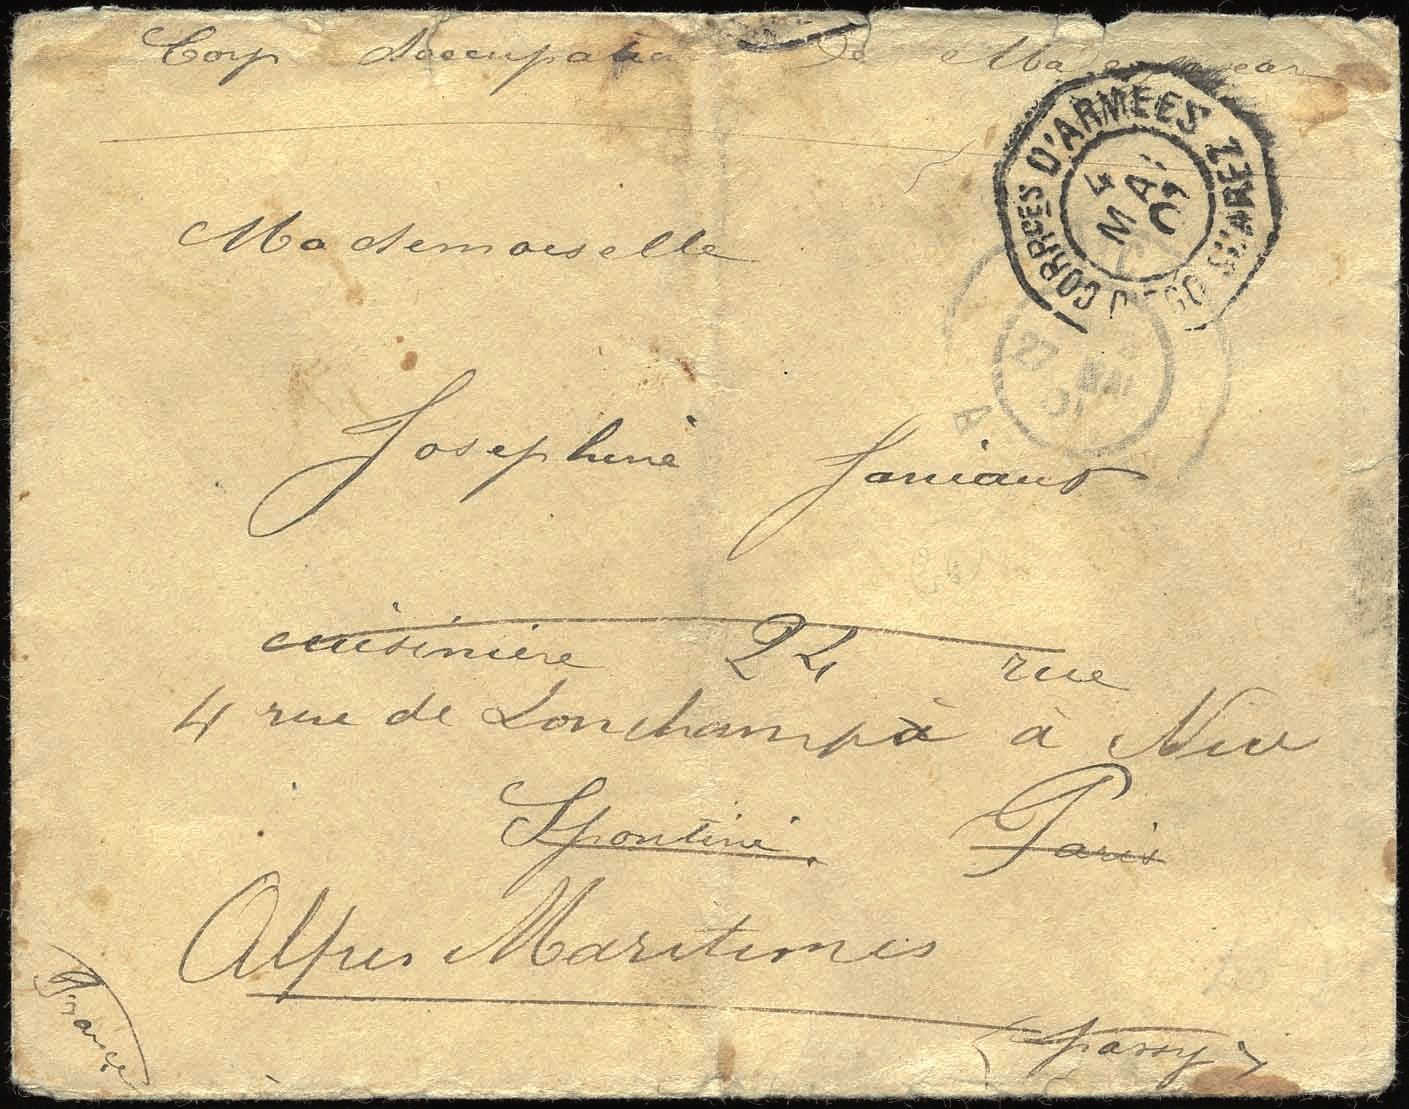 Corp d'occupation de Madagascar
CORRCES D'ARMEES
DIEGO SUAREZ
4
MAI
01
Mademoiselle
27 MAI
01
Josephine Janiaud
cuisinière 24 rue
4 rue de Lonchamp à Nice
Spontini. Paris
Alpes Maritimes
France
(passy)